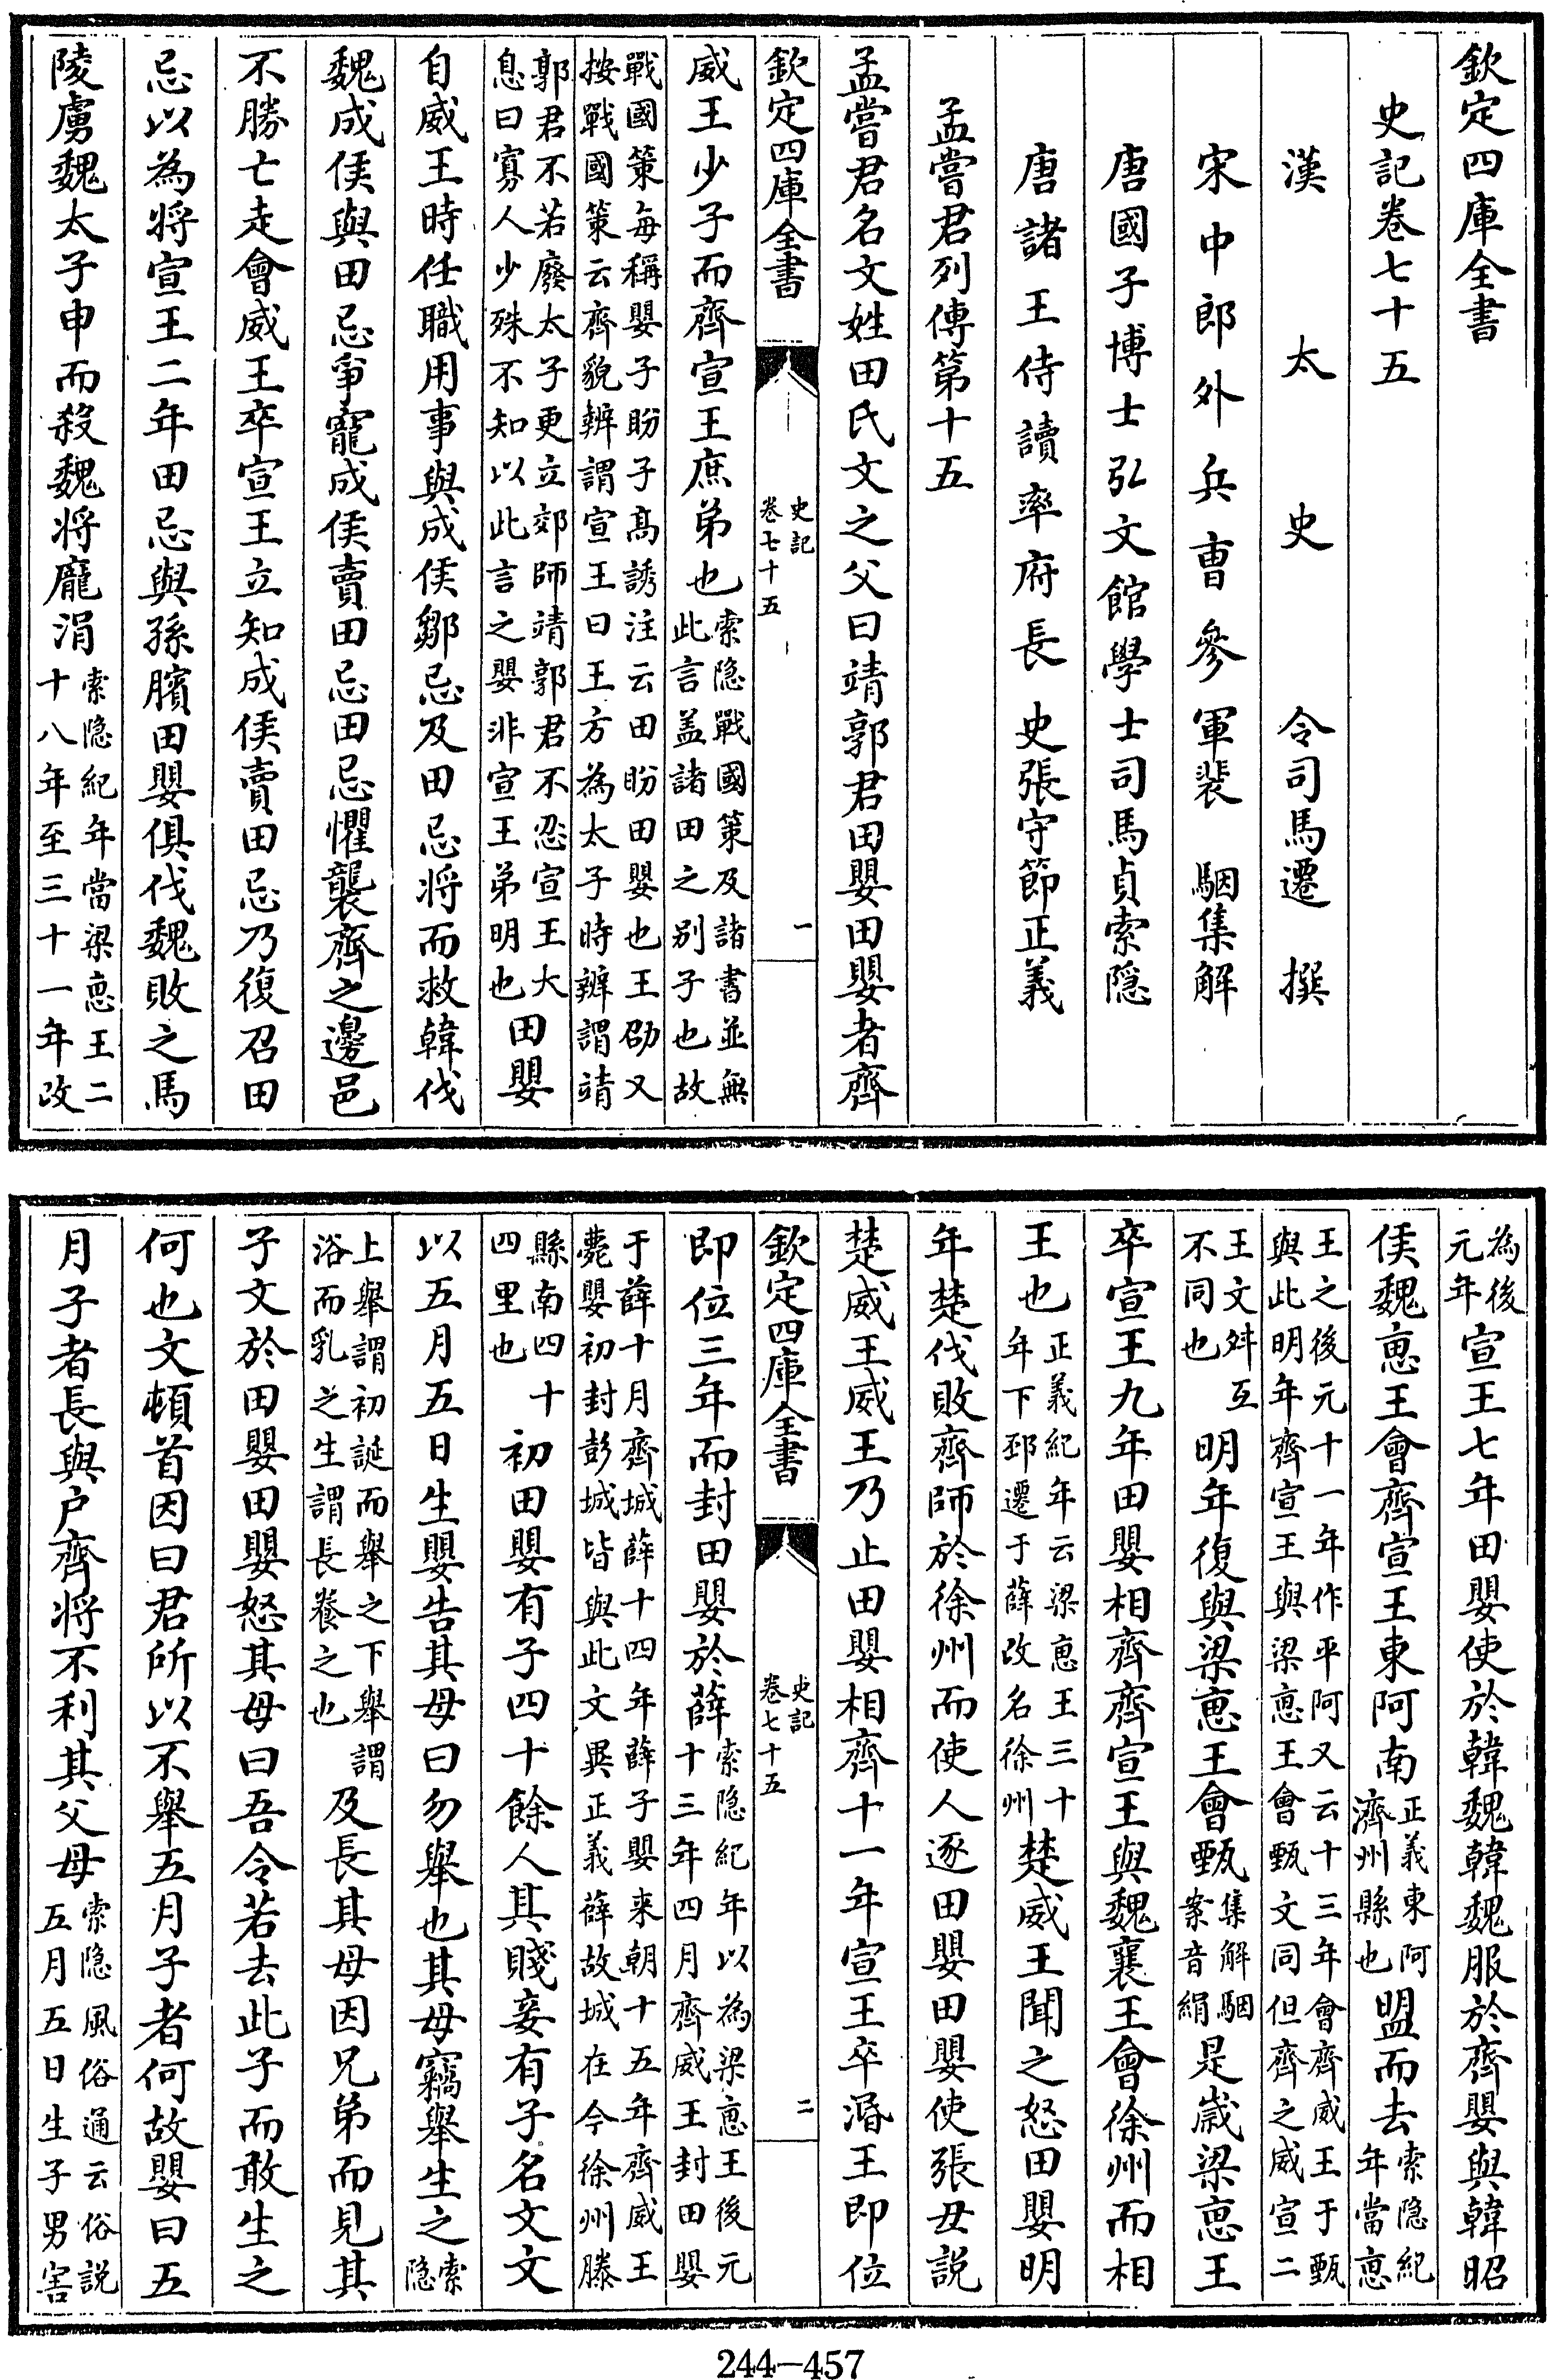 欽定四庫全書
史記卷七十五
漢太史令司馬遷撰
宋中郎外兵曹參軍裴駰集解
唐國子博士弘文館學士司馬貞索隠
唐諸王侍讀率府長史張守節正義
孟嘗君列傳第十五
孟嘗君名文姓田氏文之父曰靖郭君田嬰田嬰者齊
欽定四庫全書
史記
卷七十五
一
威王少子而齊宣王庶弟也索隠戰國策及諸書並無
此言盖諸田之别子也故
戰國策每稱嬰子盼子髙誘注云田盼田嬰也王劭又
按戰國策云齊貌辨謂宣王曰王方為太子時辨謂靖
郭君不若廢太子更立郊師靖郭君不忍宣王大
息曰寡人少殊不知以此言之嬰非宣王弟明也田嬰
自威王時任職用事與成侯鄒忌及田忌将而救韓伐
魏成侯與田忌爭寵成侯賣田忌田忌懼襲齊之邊邑
不勝亡走會威王卒宣王立知成侯賣田忌乃復召田
忌以為将宣王二年田忌與孫臏田嬰俱伐魏敗之馬
陵虜魏太子申而殺魏将龎涓索隠紀年當梁惠王二
十八年至三十一年改
為後
元年宣王七年田嬰使於韓魏韓魏服於齊嬰與韓昭
侯魏惠王會齊宣王東阿南正義東阿
濟州縣也盟而去索隠紀
年當惠
王之後元十一年作平阿又云十三年會齊威王于甄
與此明年齊宣王與梁惠王會甄文同但齊之威宣二
王文舛互
不同也明年復與梁惠王會甄集解駰
案音絹是歲梁惠王
卒宣王九年田嬰相齊齊宣王與魏襄王會徐州而相
王也正義紀年云梁惠王三十
年下邳遷于薛改名徐州楚威王聞之怒田嬰明
年楚伐敗齊師於徐州而使人逐田嬰田嬰使張丑説
楚威王威王乃止田嬰相齊十一年宣王卒湣王即位
欽定四庫全書
史記
卷七十五
二
即位三年而封田嬰於薛索隠紀年以為梁惠王後元
十三年四月齊威王封田嬰
于薛十月齊城薛十四年薛子嬰来朝十五年齊威王
薨嬰初封彭城皆與此文異正義薛故城在今徐州滕
縣南四十
四里也初田嬰有子四十餘人其賤妾有子名文文
以五月五日生嬰告其母曰勿舉也其母竊舉生之索
隠
上舉謂初誕而舉之下舉謂
浴而乳之生謂長養之也及長其母因兄弟而見其
子文於田嬰田嬰怒其母曰吾令若去此子而敢生之
何也文頓首因曰君所以不舉五月子者何故嬰曰五
月子者長與户齊将不利其父母索隠風俗通云俗説
五月五日生子男害
244-457